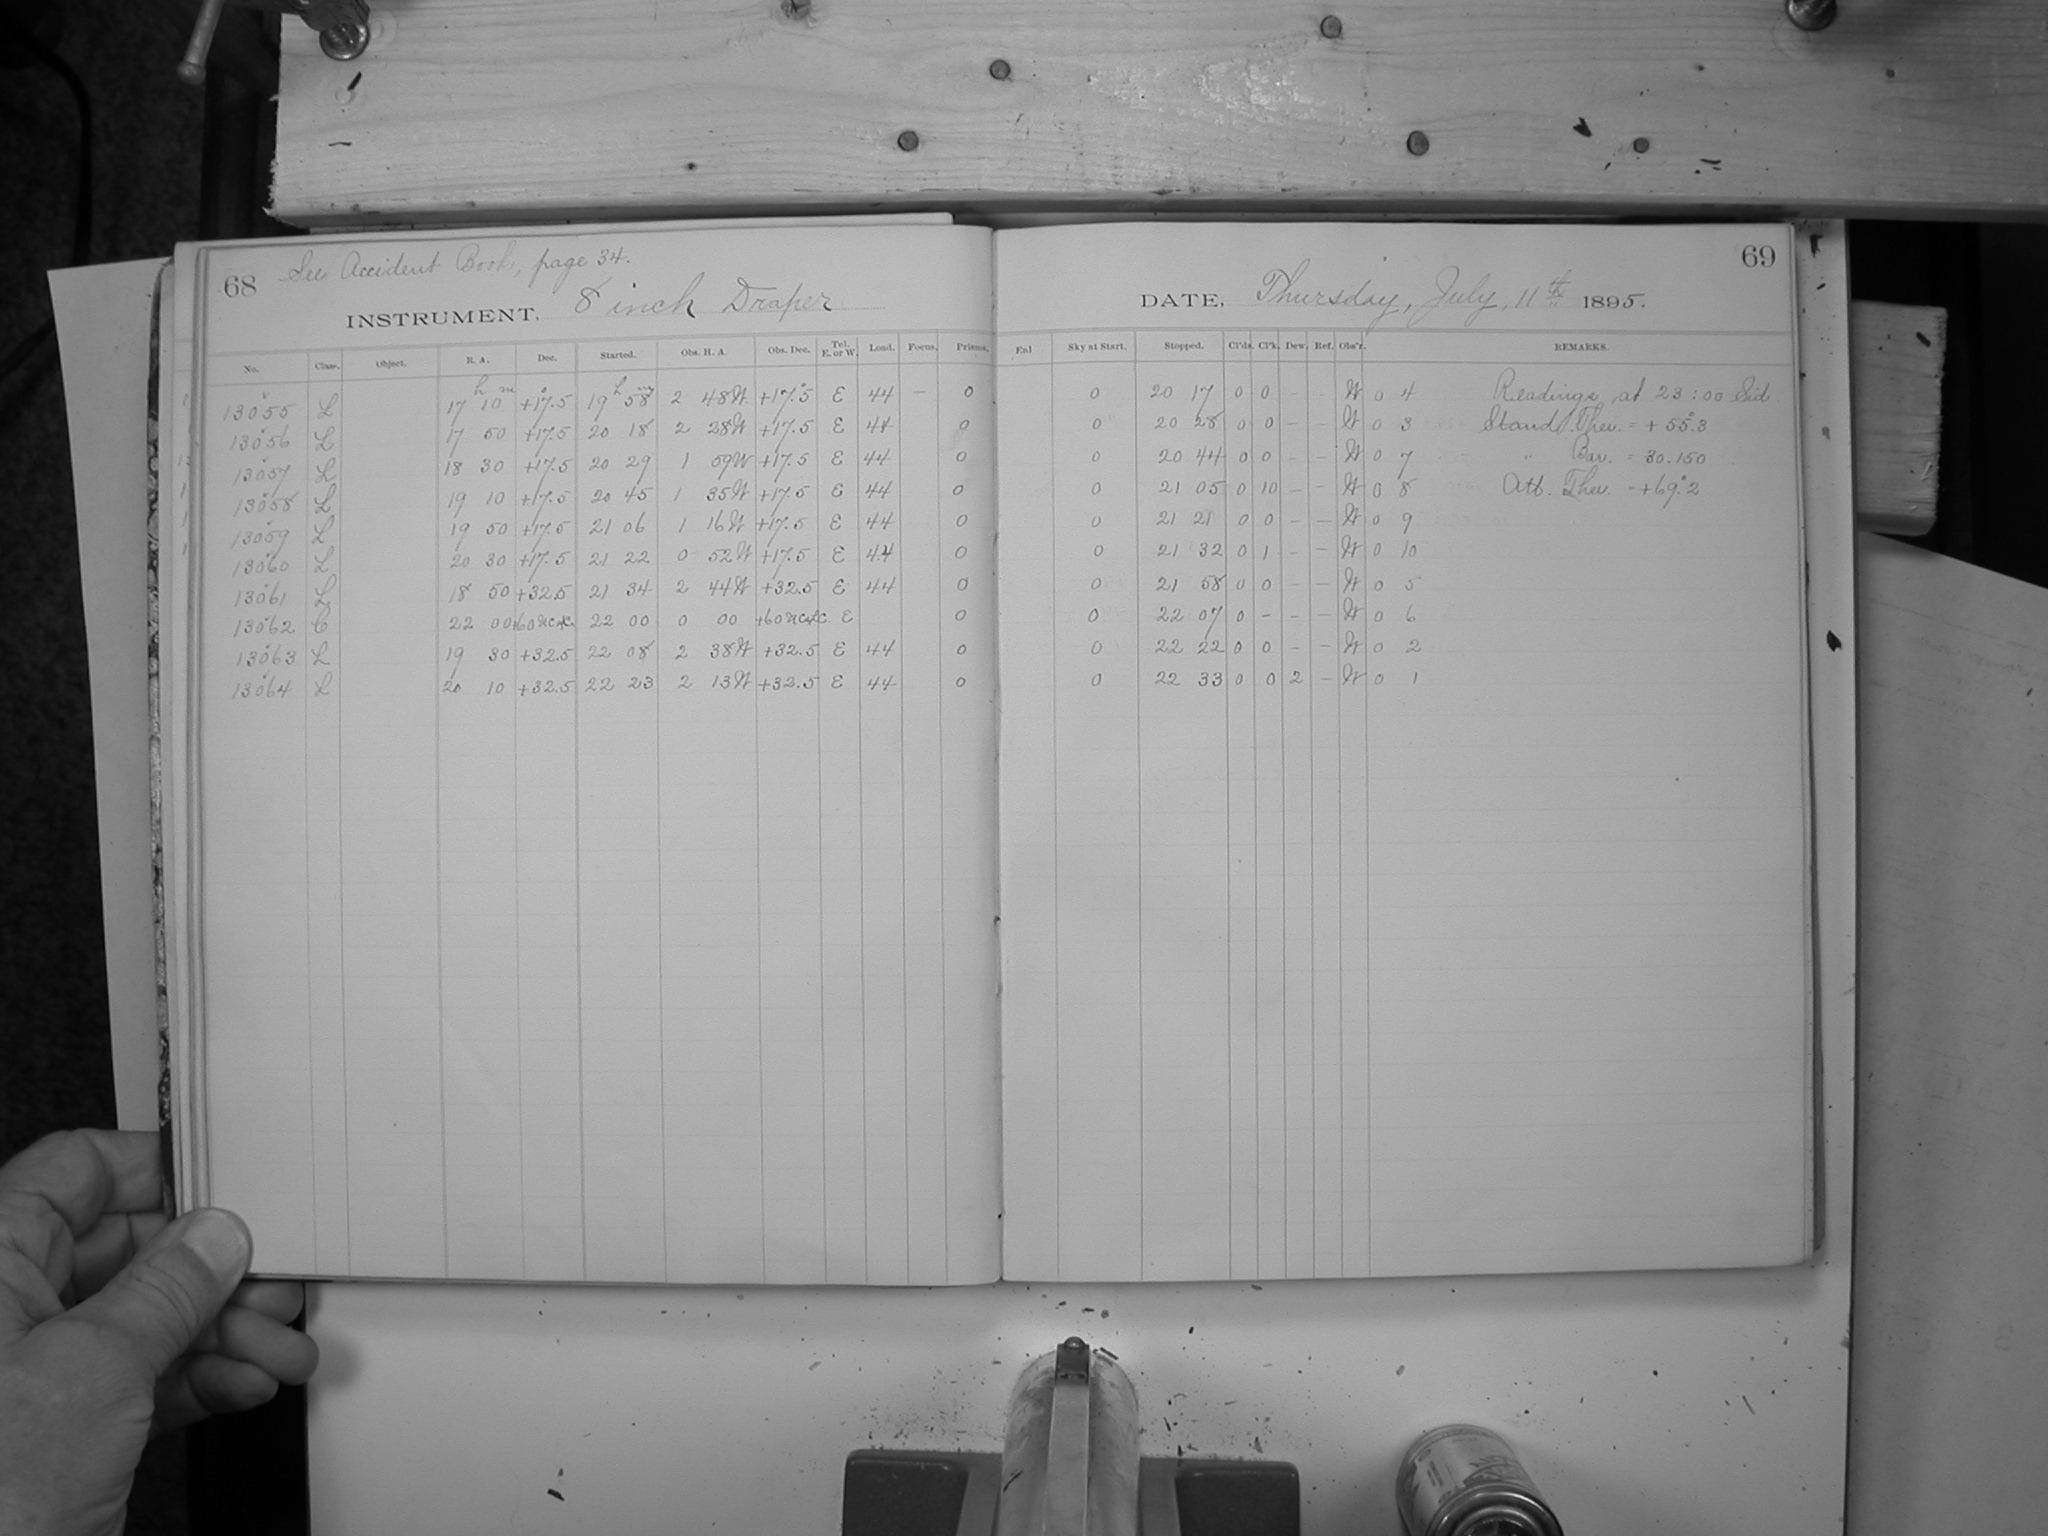 68 See Accident Book, page 34.
INSTRUMENT. 8 inch Draper
No. Class. Object. R. A. Dec. Started. Obs. H. A. Obs. Dec. Tel. E. or W. Load. Focus. Prisms.
13055 L 17h 10m +17°.5 19h 58m 2 48W +17°.5 E 44 – 0
13056 L 17 50 +17.5 20 18 2 28W +17.5 E 44 0
13057 L 18 30 +17.5 20 29 1 59W +17.5 E 44 0
13058 L 19 10 +17.5 20 45 1 35W +17.5 E 44 0
13059 L 19 50 +17.5 21 06 1 16W +17.5 E 44 0
13060 L 20 30 +17.5 21 22 0 52W +17.5 E 44 0
13061 L 18 50 +32.5 21 34 2 44W +32.5 E 44 0
13062 C 22 00 +60 22 00 0 00 +60 E 0
13063 L 19 30 +32.5 22 08 2 38W +32.5 E 44 0
13064 L 20 10 +32.5 22 23 2 13W +32.5 E 44 0
69
DATE, Thursday, July, 11th 1895.
Enl Sky at Start. Stopped. Cl'ds. Cl'k. Dew. Ref. Obs'r. REMARKS.
0 20 17 0 0 – – W 0 4 Readings at 23:00 Sid.
0 20 28 0 0 – – W 0 3 Stand. Ther. = +55°.3
0 20 44 0 0 – – W 0 7 " Bar. = 30.150
0 21 05 0 10 – – W 0 8 Att. Ther. = +69°.2
0 21 21 0 0 – – W 0 9
0 21 32 0 1 – – W 0 10
0 21 58 0 0 – – W 0 5
0 22 07 0 – – – W 0 6
0 22 22 0 0 – – W 0 2
0 22 33 0 0 2 – W 0 1